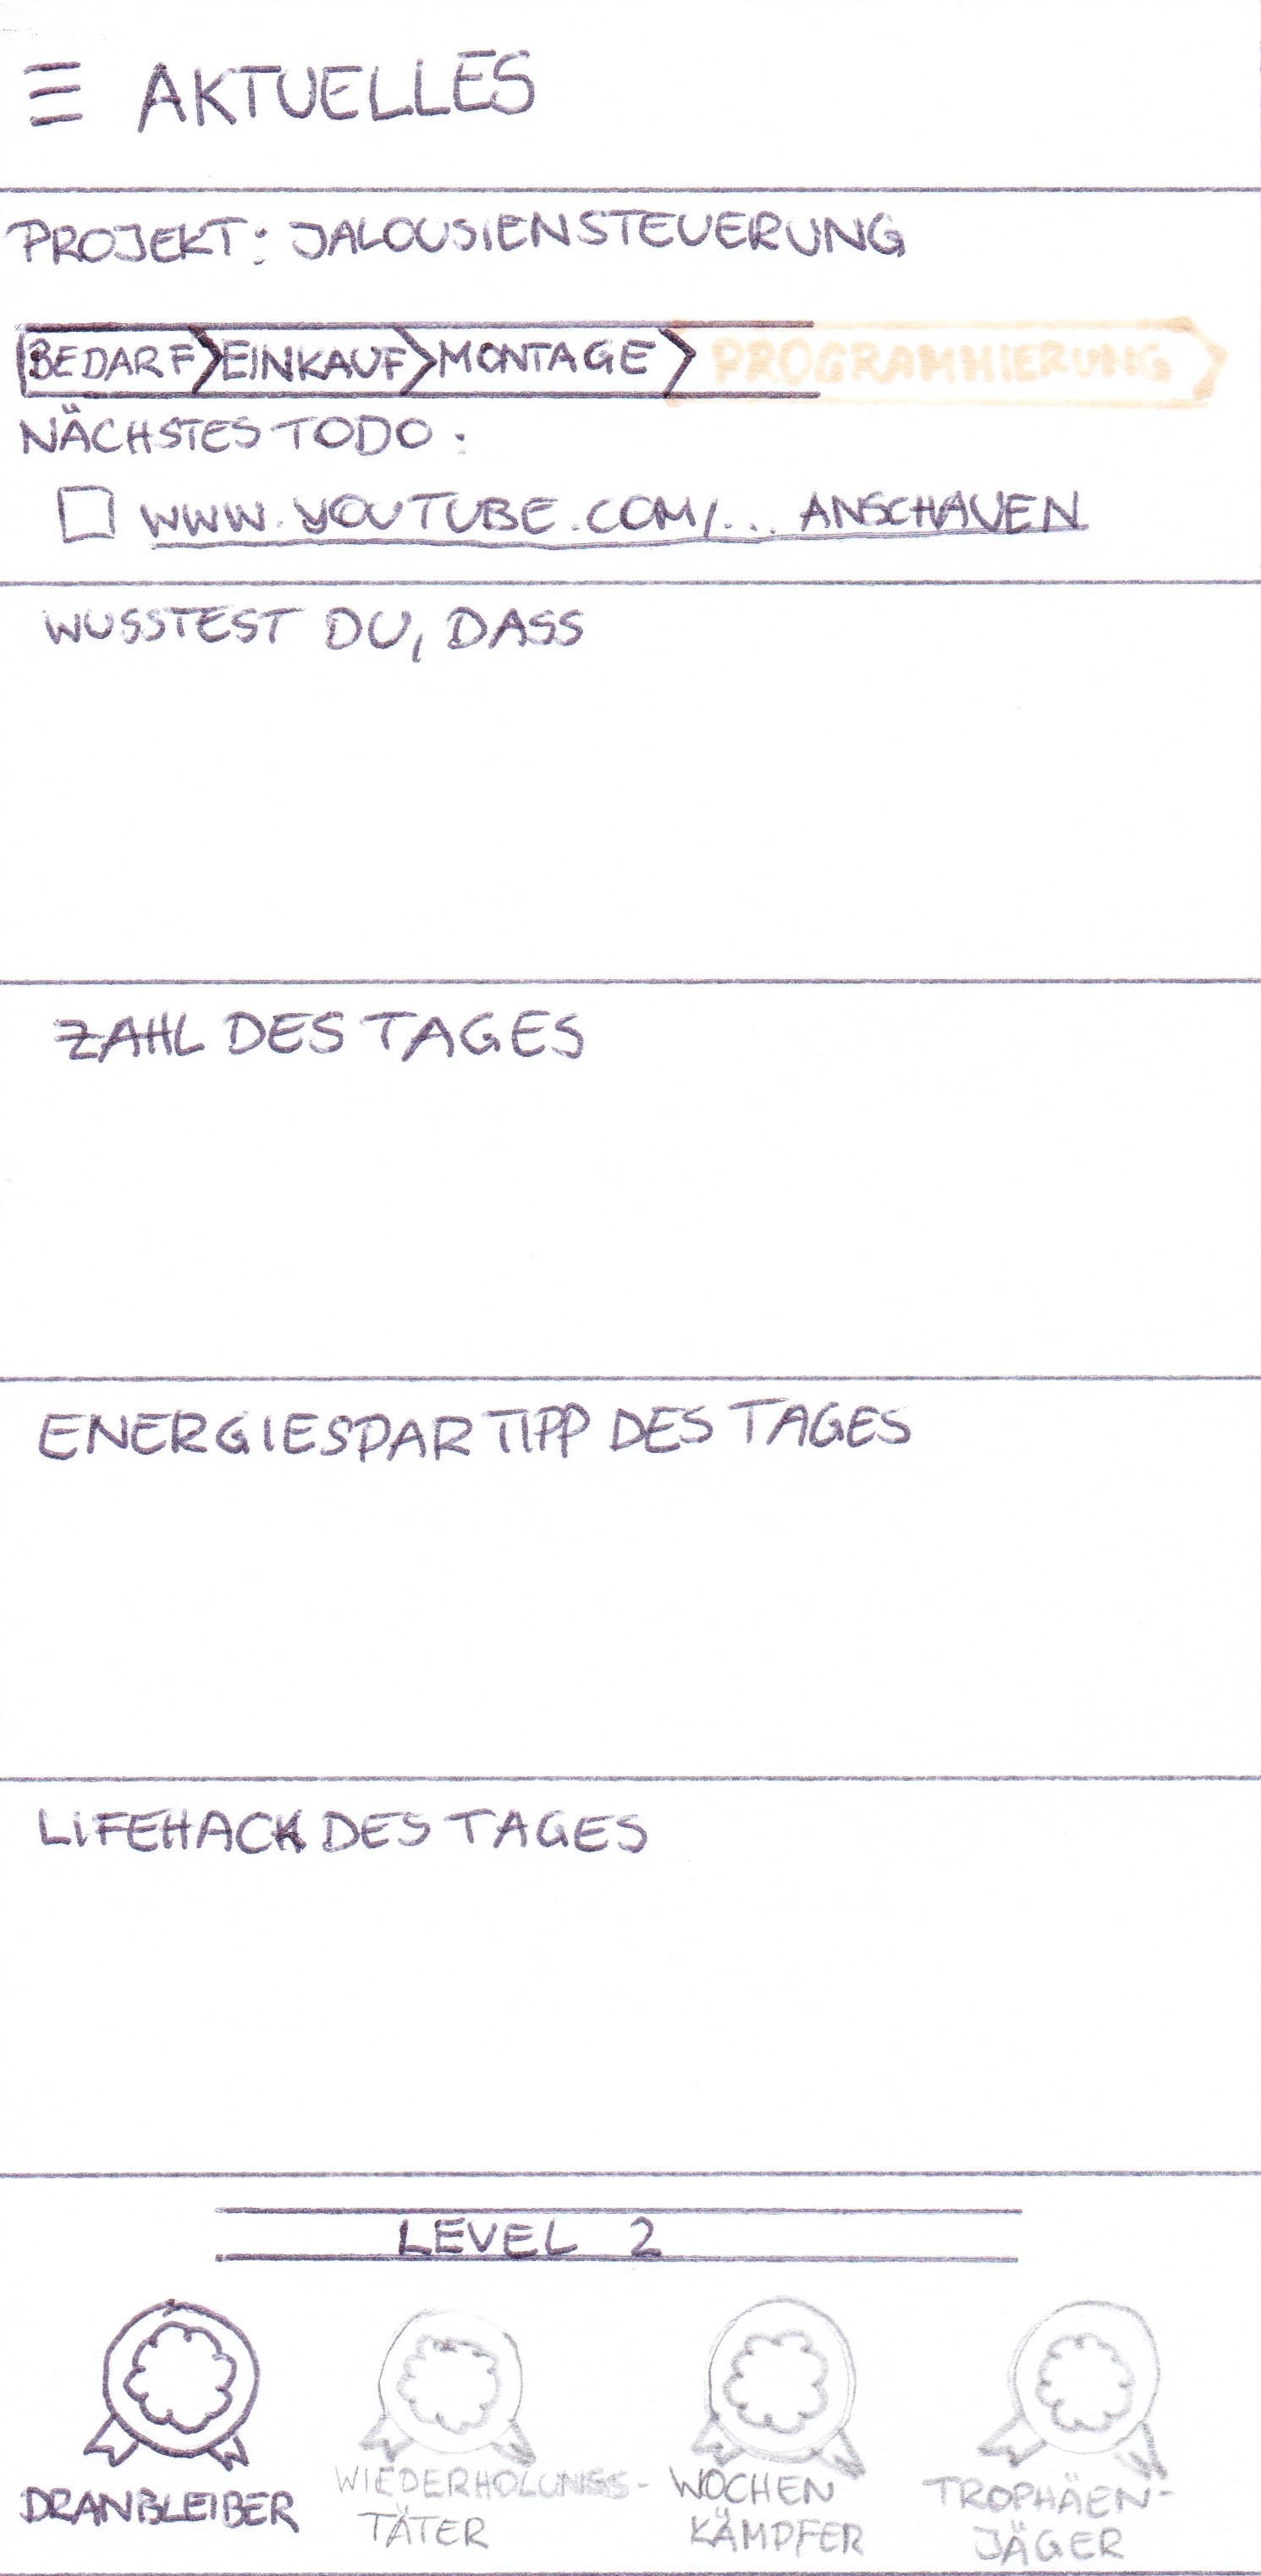 AKTUELLES
PROJEKT: JALOUSIENSTEUERUNG
BEDARF EINKAUF MONTAGE PROGRAMMIERUNG
NÄCHSTES TODO:
WWW.YOUTUBE.COM/... ANSCHAUEN
WUSSTEST DU, DASS
ZAHL DES TAGES
ENERGIESPARTIPP DES TAGES
LIFEHACK DES TAGES
LEVEL 2
DRANBLEIBER
WIEDERHOLUNGS-
TÄTER
WOCHEN
KÄMPFER
TROPHÄEN-
JÄGER